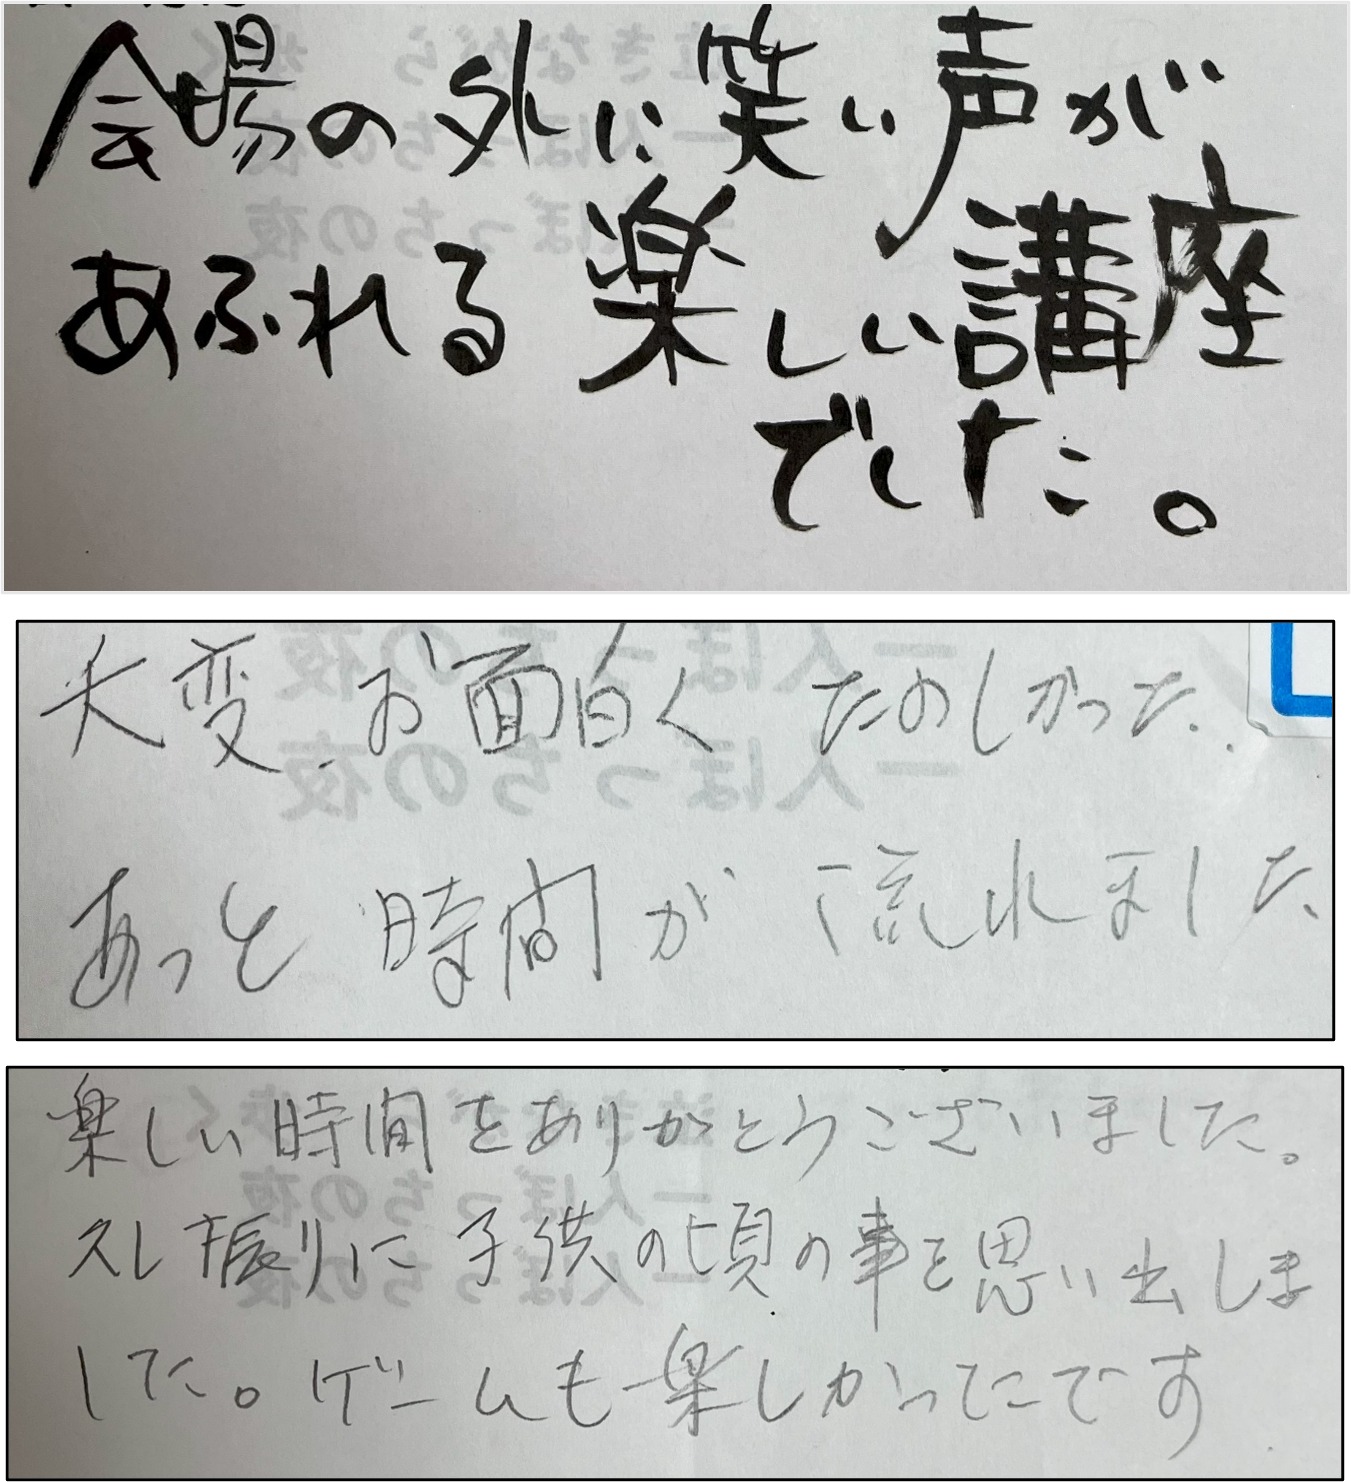 会場の外に笑い声が
あふれる楽しい講座
でした。
大変お面白くたのしかった、
あっと時間が流れました
楽しい時間をありがとうございました。
久し振りに子供の頃の事を思い出しま
した。ゲームも楽しかったです